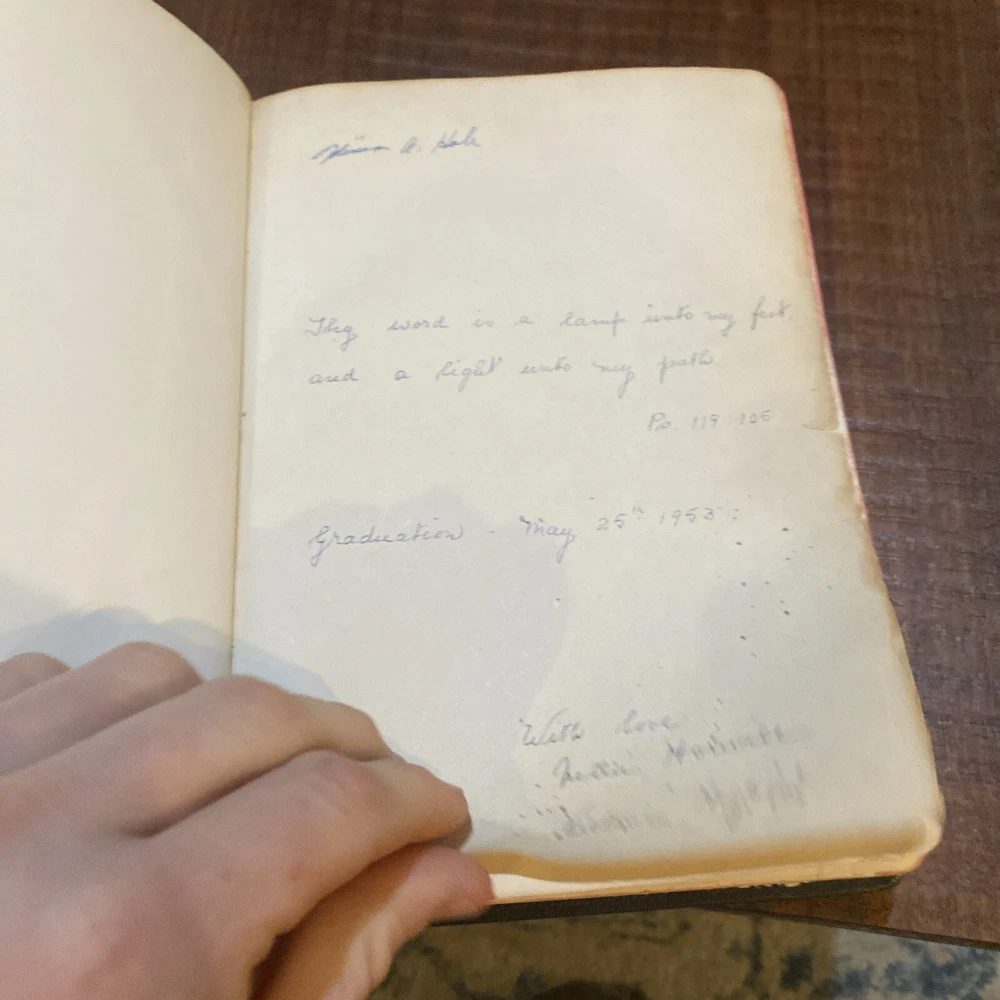 A. Hole
Thy word is a lamp unto my feet.
and a light unto my path
Ps. 119:105
Graduation - May 25th 1953
With love